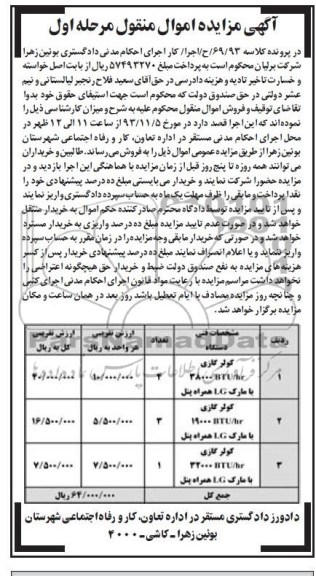 آگهی مزایده اموال منقول مرحله اول
در پرونده کلاسه ۶۹/۹۳/ح/اجرا/ کار اجرای احکام مدنی دادگستری بوئین زهرا
شرکت برلیان محکوم است به پرداخت مبلغ ۵۷۴۹۳۲۷۰ ریال از بابت اصل خواسته
و خسارت تاخیر تادیه و هزینه دادرسی در حق آقای سعید فلاح رنجبر لیالستانی و نیم
عشر دولتی در حق صندوق دولت که محکوم است جهت استیفای حقوق خود بدوا
تقاضای توقیف و فروش اموال منقول محکوم علیه به شرح و میزان کارشناسی ذیل را
نموده‌اند که این اجرا قصد دارد در مورخ ۹۳/۱۱/۵ از ساعت ۱۱ الی ۱۲ ظهر در
محل اجرای احکام مدنی مستقر در اداره تعاون، کار و رفاه اجتماعی شهرستان
بوئین زهرا از طریق مزایده عمومی اموال ذیل را به فروش می‌رساند. طالبین و خریداران
می توانند همه روزه تا پنج روز قبل از زمان مزایده با هماهنگی این اجرا بازدید و در
مزایده حضورا شرکت نمایند و خریدار می بایستی مبلغ ده درصد پیشنهادی خود را
نقدا پرداخت و مابقی را ظرف مهلت یک ماه به حساب سپرده دادگستری واریز نمایند
و پس از تایید مزایده توسط دادگاه محترم صادر کننده حکم اموال به خریدار منتقل
خواهد شد و در صورت عدم تایید مزایده مبلغ ده درصد واریزی به خریدار مسترد
خواهد شد و در صورتی که خریدار مابقی وجه مزایده را در زمان مقرر به حساب سپرده
واریز ننماید و یا اعلام انصراف نمایند مبلغ ده درصد پیشنهادی خریدار پس از کسر
هزینه های مزایده به نفع صندوق دولت ضبط و خریدار حق هیچگونه اعتراضی را
نخواهد داشت مراسم مزایده با رعایت مواد قانون اجرای احکام مدنی اجرای کتبی
و چنانچه روز مزایده مصادف با ایام تعطیل باشد روز بعد در همان ساعت و مکان
مزایده برگزار خواهد شد.
ردیف مشخصات فنی دستگاه تعداد ارزش تقریبی هر واحد به ریال ارزش تقریبی کل به ریال
۱ کولر گازی ۳۸۰۰۰ BTU/hr با مارک LG همراه پنل ۴ ۱۰/۰۰۰/۰۰۰ ۴۰/۰۰۰/۰۰۰
۲ کولر گازی ۱۹۰۰۰ BTU/hr با مارک LG همراه پنل ۳ ۵/۵۰۰/۰۰۰ ۱۶/۵۰۰/۰۰۰
۳ کولر گازی ۳۲۰۰۰ BTU/hr با مارک LG همراه پنل ۱ ۷/۵۰۰/۰۰۰ ۷/۵۰۰/۰۰۰
جمع کل ۶۴/۰۰۰/۰۰۰ ریال
دادورز دادگستری مستقر در اداره تعاون، کار و رفاه اجتماعی شهرستان
بوئین زهرا ــ کاشی ــ ۴۰۰۰